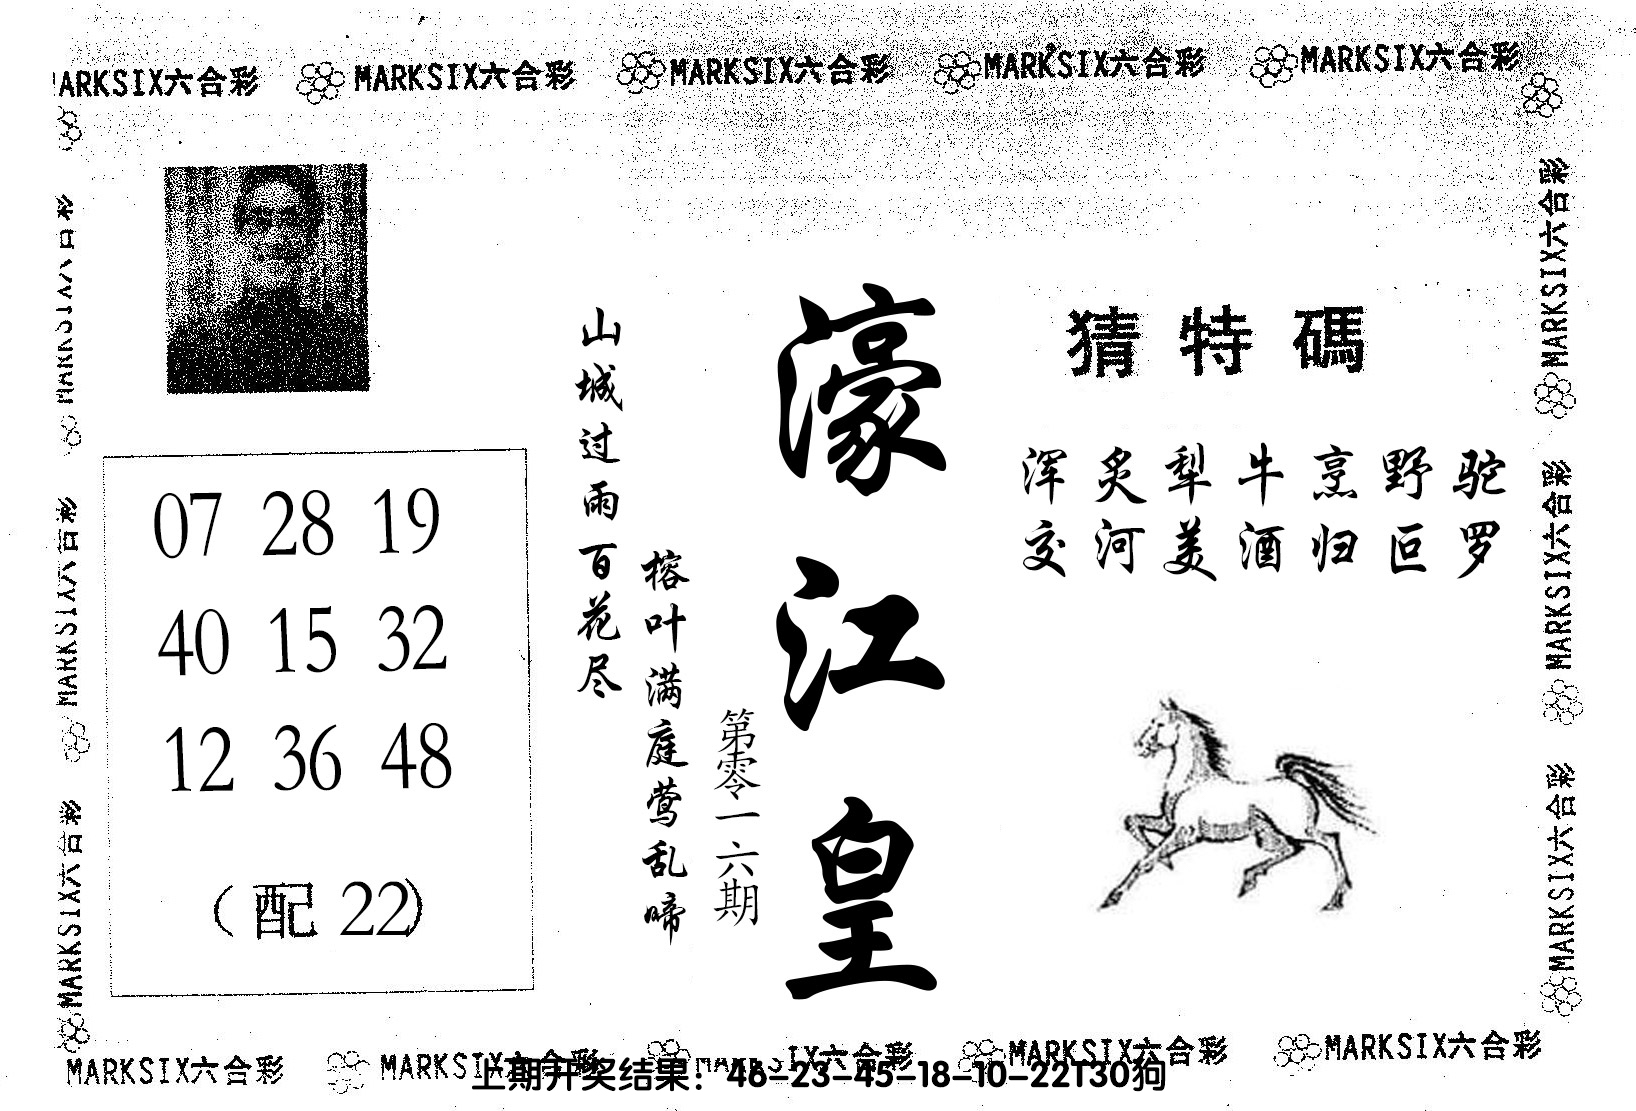 MARKSIX六合彩 MARKSIX六合彩 MARKSIX六合彩 MARKSIX六合彩
MARKSIX六合彩
MARKSIX六合彩
MARKSIX六合彩
MARKSIX六合彩
MARKSIX六合彩
07 28 19
40 15 32
12 36 48
(配 22)
山城过雨百花尽
榕叶满庭莺乱啼
第零一六期
濠江皇
猜特碼
浑炙犁牛烹野驼
交河美酒归叵罗
MARKSIX六合彩 MARKSIX六合彩 MARKSIX六合彩 MARKSIX六合彩
上期开奖结果：46-23-45-18-10-22T30狗